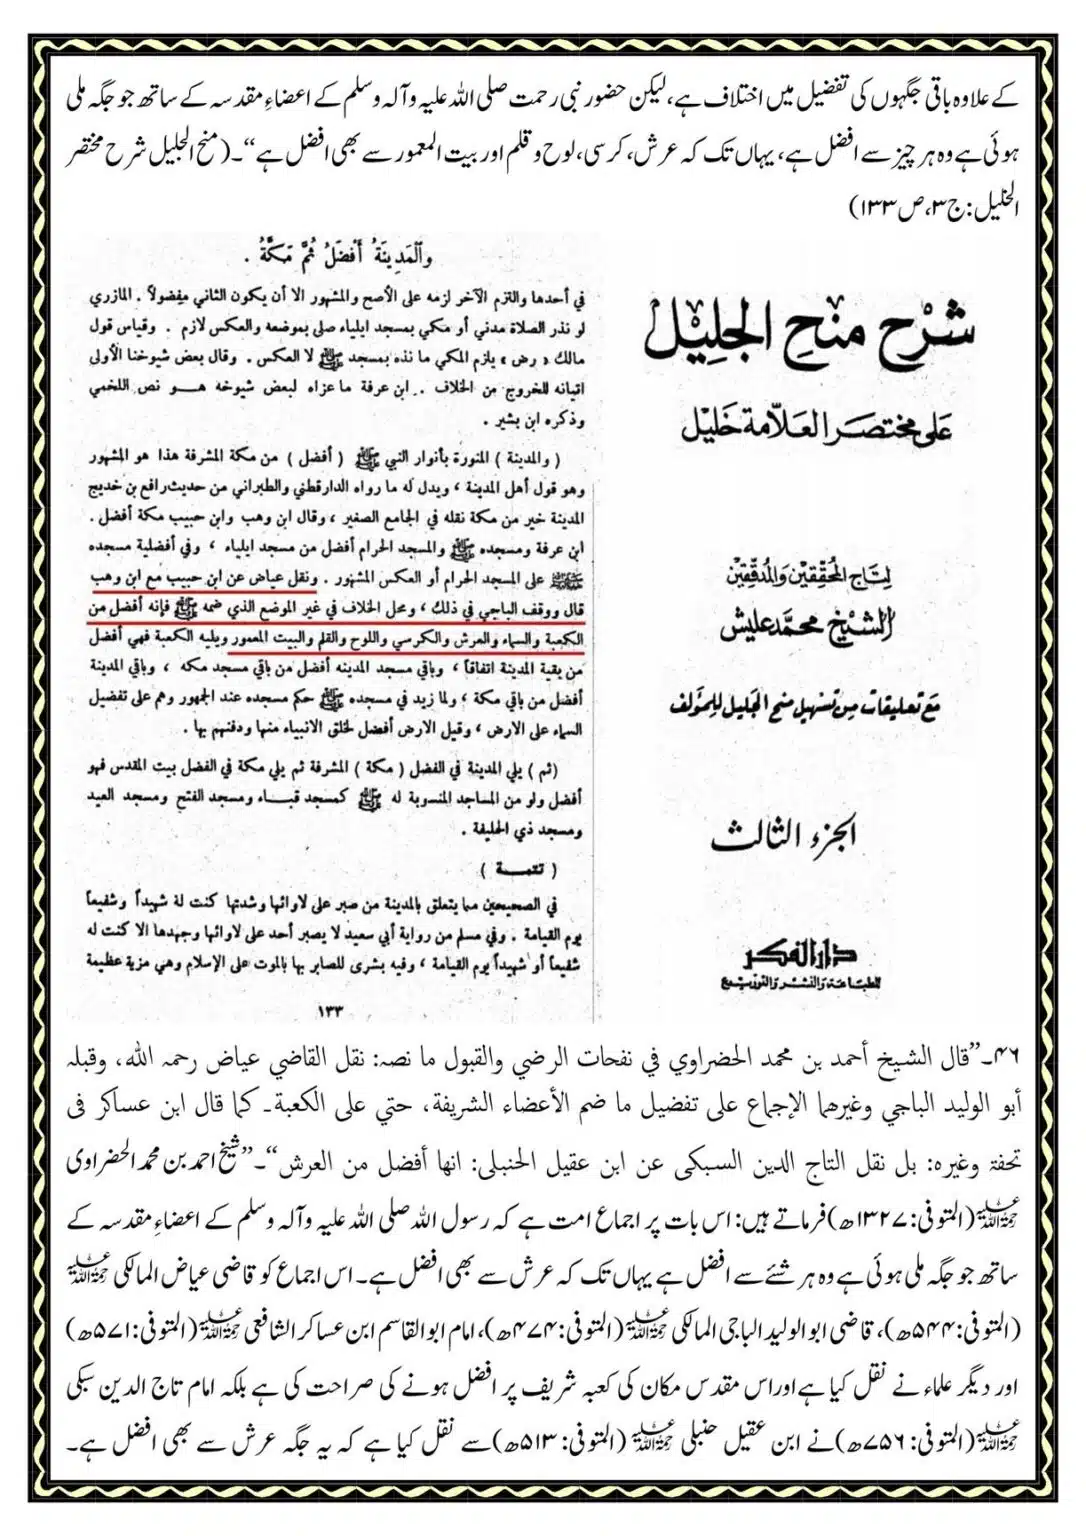 کے علاوہ باقی جگہوں کی تفضیل میں اختلاف ہے، لیکن حضور نبی رحمت صلی اللہ علیہ وآلہ وسلم کے اعضاءِ مقدسہ کے ساتھ جو جگہ ملی
ہوئی ہے وہ ہر چیز سے افضل ہے، یہاں تک کہ عرش، کرسی، لوح و قلم اور بیت المعمور سے بھی افضل ہے“۔ (منح الجلیل شرح مختصر
الخلیل: ج۳، ص۱۳۳)
والمَدِينَةُ أَفضَلُ ثُمَّ مَكَّةُ .
في أحدها والتزم الآخر لزمه على الأصح والمشهور الا أن يكون الثاني مفضولاً . المازري
لو نذر الصلاة مدني أو مكي بمسجد ايلياء صلى بموضعه والعكس لازم . وقياس قول
مالك « رض » يلزم المكي ما نذه بمسجد ﷺ لا العكس . وقال بعض شيوخنا الأولى
اتيانه للخروج من الخلاف . ابن عرفة ما عزاه لبعض شيوخه هـو نص اللخمي
وذكره ابن بشير .
( والمدينة ) المنورة بأنوار النبي ﷺ ( أفضل ) من مكة المشرفة هذا هو المشهور
وهو قول أهل المدينة ، ويدل له ما رواه الدارقطني والطبراني من حديث رافع بن خديج
المدينة خير من مكة نقله في الجامع الصغير ، وقال ابن وهب وابن حبيب مكة أفضل .
ابن عرفة ومسجده ﷺ والمسجد الحرام أفضل من مسجد ايلياء ، وفي أفضلية مسجده
ﷺ على المسجد الحرام أو العكس المشهور . ونقل عياض عن ابن حبيب مع ابن وهب
قال ووقف الباجي في ذلك ، ومحل الخلاف في غير الموضع الذي ضمه ﷺ فإنه أفضل من
الكعبة والسماء والعرش والكرسي واللوح والقلم والبيت المعمور ويليه الكعبة فهي أفضل
من بقية المدينة اتفاقاً ، وباقي مسجد المدينه أفضل من باقي مسجد مكه ، وباقي المدينة
أفضل من باقي مكة ، ولما زيد في مسجده ﷺ حكم مسجده عند الجمهور وهم على تفضيل
السماء على الارض ، وقيل الارض أفضل لخلق الانبياء منها ودفنهم بها .
(ثم ) يلي المدينة في الفضل ( مكة ) المشرفة ثم يلي مكة في الفضل بيت المقدس فهو
أفضل ولو من المساجد المنسوبة له ﷺ كمسجد قبـاء ومسجد الفتح ومسجد العيد
ومسجد ذي الحليفة .
( تتمـة )
في الصحيحين مما يتعلق بالمدينة من صبر على لاوائها وشدتها كنت له شهيداً وشفيعاً
يوم القيامة . وفي مسلم من رواية أبي سعيد لا يصبر أحد على لاوائها وجهدها الا كنت له
شفيعاً أو شهيداً يوم القيامة ، وفيه بشرى للصابر بها بالموت على الإسلام وهي مزية عظيمة
١٣٣
شَرْح منَحِ الجَلِيْل
عَلى مختصَر العَلّامة خَليْل
لِتَاج المُحقِّقين وَالمُدقِّقين
الشيْخ محمَّد عليْش
مَع تعليقات مِن تسْهيل منح الجَليل للمؤلف
الجزء الثالث
دار الفكر
للطبَاعة والنشر والتوزيع
۴۶۔”قال الشيخ أحمد بن محمد الحضراوي في نفحات الرضي والقبول ما نصه: نقل القاضي عياض رحمه الله، وقبله
أبو الوليد الباجي وغيرهما الإجماع على تفضيل ما ضم الأعضاء الشريفة، حتي على الكعبة۔ كما قال ابن عساكر فى
تحفتہ وغيره: بل نقل التاج الدين السبكى عن ابن عقيل الحنبلى: انها أفضل من العرش“۔”شیخ احمد بن محمد الحضراوی
رحمۃ اللہ علیہ (المتوفی: ۱۳۲۷ھ) فرماتے ہیں: اس بات پر اجماع امت ہے کہ رسول اللہ صلی اللہ علیہ وآلہ وسلم کے اعضاءِ مقدسہ کے
ساتھ جو جگہ ملی ہوئی ہے وہ ہر شئے سے افضل ہے یہاں تک کہ عرش سے بھی افضل ہے۔ اس اجماع کو قاضی عیاض المالکی رحمۃ اللہ علیہ
(المتوفی: ۵۴۴ھ)، قاضی ابو الولید الباجی المالکی رحمۃ اللہ علیہ (المتوفی: ۴۷۴ھ)، امام ابو القاسم ابن عساکر الشافعی رحمۃ اللہ علیہ (المتوفی: ۵۷۱ھ)
اور دیگر علماء نے نقل کیا ہے اور اس مقدس مکان کی کعبہ شریف پر افضل ہونے کی صراحت کی ہے بلکہ امام تاج الدین سبکی
رحمۃ اللہ علیہ (المتوفی: ۷۵۶ھ) نے ابن عقیل حنبلی رحمۃ اللہ علیہ (المتوفی: ۵۱۳ھ) سے نقل کیا ہے کہ یہ جگہ عرش سے بھی افضل ہے۔